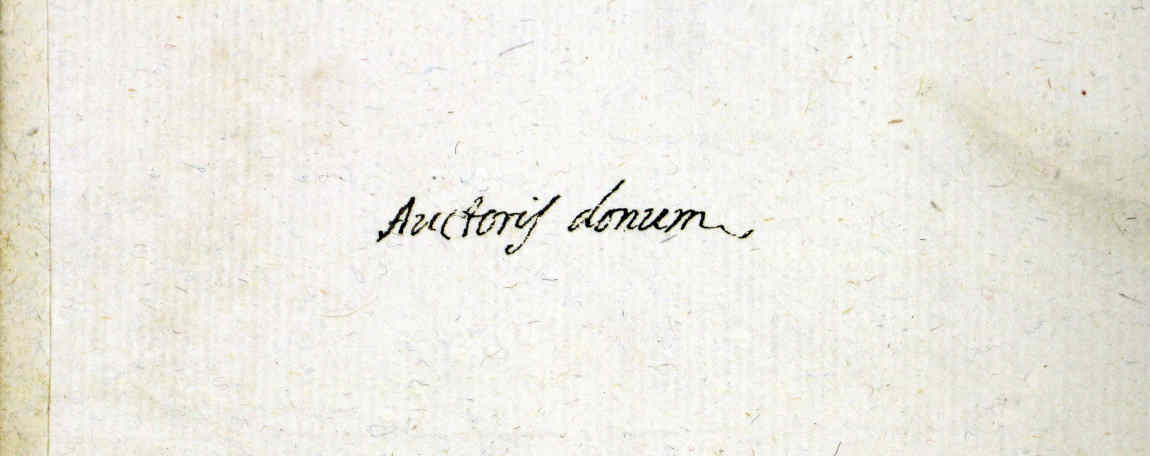 Auctoris donum